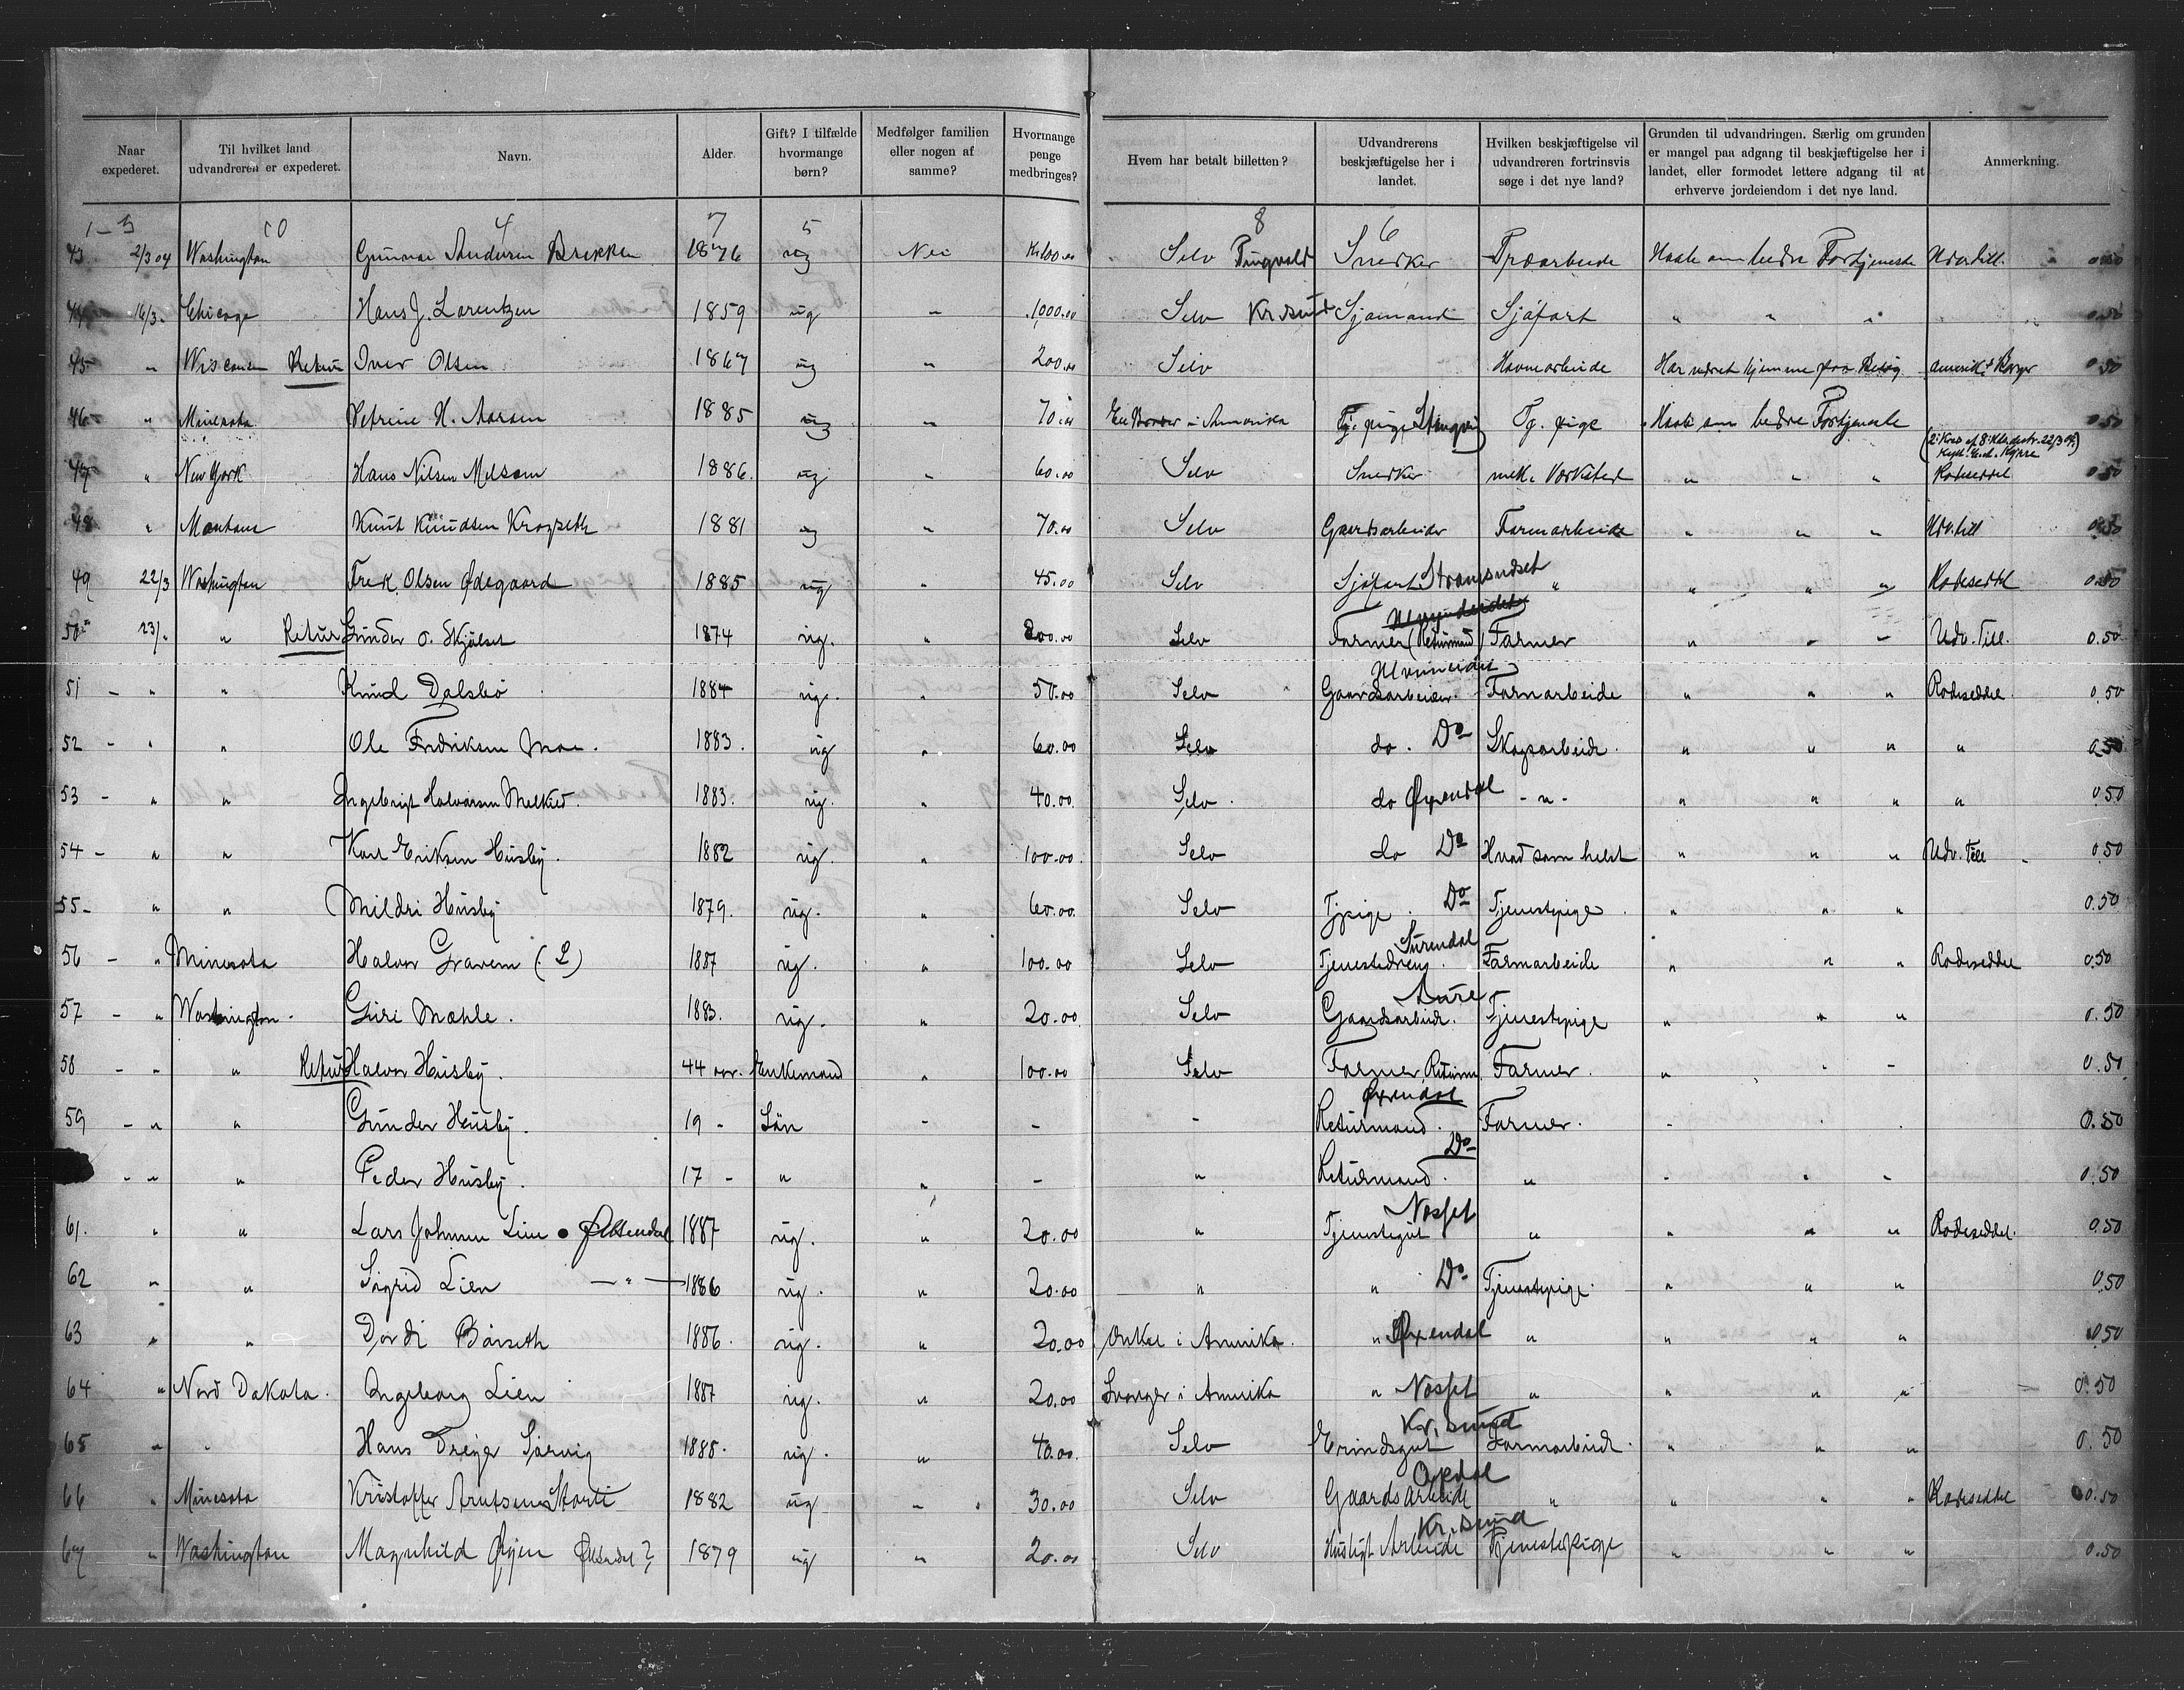 Naar expederet. | Til hvilket land udvandreren er expederet. | Navn. | Alder. | Gift? I tilfælde hvormange børn? | Medfølger familien eller nogen af samme? | Hvormange penge medbringes? | Hvem har betalt billetten? | Udvandrerens beskjæftigelse her i landet. | Hvilken beskjæftigelse vil udvandreren fortrinsvis søge i det nye land? | Grunden til udvandringen. Særlig om grunden er mangel paa adgang til beskjæftigelse her i landet, eller formodet lettere adgang til at erhverve jordeiendom i det nye land. | Anmerkning.
1-3 | 10 | 4 | 7 | 5 | 8 | 6
43 2/3 04 | Washington | Gunnar Andersen Brekken | 1876 | ug | Nei | Kr 100.00 | Selv Tingvold | Snedker | Træarbeide | Haab om bedre Fortjeneste | Udv. till. | 0.50
44 16/3. | Chicago | Hans J. Lorentzen | 1859 | ug | " | 1,000.00 | Selv Kr.sund | Sjømand | Sjøfart | " " " | 0.50
45 " | Wisconsin Retur | Iver Olsen | 1867 | ug | " | 200.00 | Selv | Havnearbeide | Har været hjemme paa Besøg | Amerik. Borger | 0.50
46 " | Minesota | Petrine H. Aarsen | 1885 | ug | " | 70.00 | En Broder i Amerika | Tj. pige Stangvig | Tj. pige | Haab om bedre Fortjeneste | 0.50
47 " | New York | Hans Nilsen Melsom | 1886. | ug | " | 60.00 | Selv | Snedker | mek. Værksted | " " " | Rodeseddel | 0.50
48 " | Montana | Knut Knudsen Krogseth | 1881 | ug | " | 70.00 | Selv | Gaardsarbeider | Farmarbeide | " " " | Udv. till | 0.50
49 22/3 | Washington | Fredk. Olsen Ødegaard | 1885 | ug | " | 45.00 | Selv | Sjøfart Straumsnæset | " | " " " | Rodeseddel | 0.50
50 23/. | " Retur | Gunder O. Skjølset | 1874 | ug. | " | 200.00 | Selv | Farmer (Returmand) | Farmer | " " " | Udv. Till. | 0.50
51 - " | " | Knud Dalsbø | 1884 | ug. | " | 50.00 | Selv | Gaardsarbeider. | Farmarbeide | " " " | Rodeseddel. | 0.50
52 - " | " | Ole Fredriksen Moe. | 1883. | ug | " | 60.00 | Selv | do. Do | Skogsarbeide. | " " " | " | 0.50
53 - " | " | Ingebrigt Halvorsen Melkild. | 1883. | ug. | " | 40.00. | Selv. | do Øxendal | - " - | " " " | " | 0.50
54 - " | " | Karl Eriksen Husby. | 1882 | ug. | " | 100.00. | Selv | do Do | Hvad som helst | " " " | Udv. Till | 0.50
55 - " | " | Mildri Husby | 1879. | ug. | " | 60.00. | Selv | Tjpige. Do | Tjenestepige. | " " " | 0.50
56 - " | Minesota | Halvor Gravem (L) | 1887 | ug. | " | 100.00 | Selv | Tjenestedreng. Surendal | Farmarbeide | " " " | Rodeseddel | 0.50
57 - " | Washington. | Guri Mæhle. | 1883. | ug. | " | 20.00. | Selv | Gaardsarbeide. Aure | Tjenestepige | " " " | 0.50
58 - " | " Retur | Halvor Husby. | 44 aar. | Enkemand | " | 100.00 | Selv | Farmer, Returm. | Farmer. | " " " | 0.50
59 - " | " | Gunder Husby. | 19 - | Søn | " | - | - | Returmand. Øxendal | Farmer. | - " . | 0.50
- " | " | Peder Husby. | 17 - | " | " | - | " | Returmand. Do | " | - " " | 0.50
61. " | " | Lars Johnsen Lien Øksendal | 1887 | ug. | " | 20.00 | " | Tjenestegut Nosset | " | " " " | Rodeseddel. | 0.50
62 " | " | Sigrid Lien - " - | 1886 | ug. | " | 20.00 | " | " Do | Tjenestepige. | " " " | 0.50
63 " | " | Dordi Børseth | 1886. | ug. | " | 20.00 | Onkel i Amerika. | " Øxendal | " | " " " | 0.50
64 " | Nord Dakota. | Ingeborg Lien | 1887 | ug. | " | 20.00 | Svoger i Amerika | " Nosset | " | " " " | 0.50
65 " | " | Hans Dreyer Sørvig | 1888. | ug. | " | 40.00. | Selv | Erindsgut Kr.sund | Farmarbeide. | " " " | 0.50
66 " | Minesota | Kristoffer Arntsen Storli | 1882 | ug | " | 30.00 | Selv | Gaardsarbeide Opdal | " | " " " | Rodeseddel | 0.50
67 " | Washington | Magnhild Øyen Øksendal? | 1879 | ug | " | 20.00 | Selv | Husligt Arbeide Kr.sund | Tjenestepige | " " " | 0.50